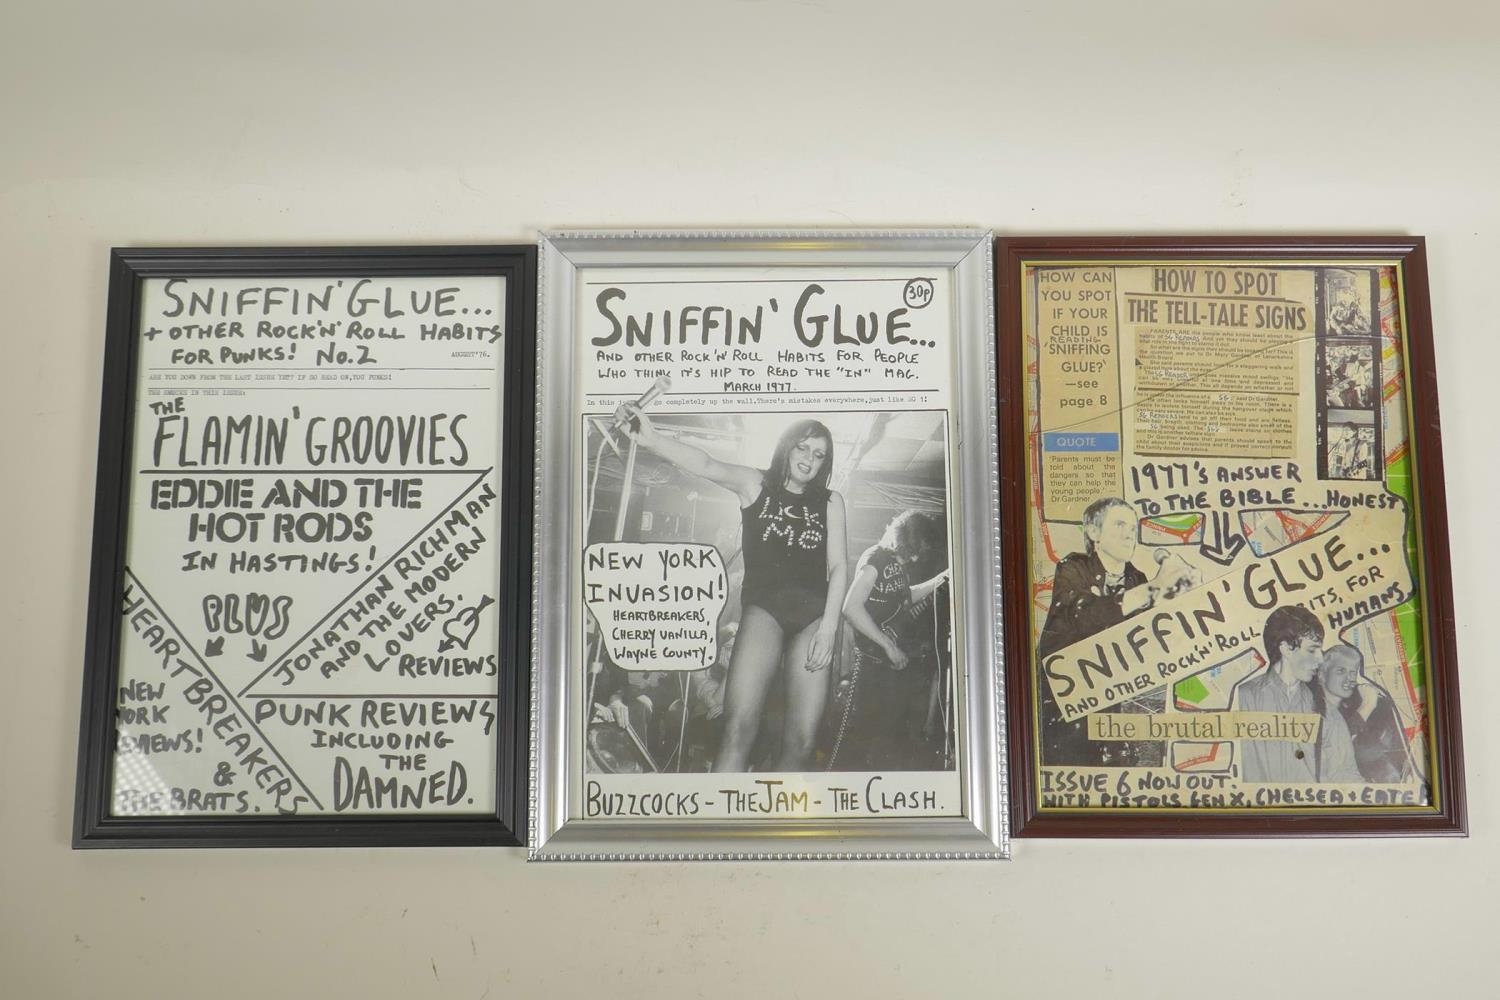 SNIFFIN' GLUE...
+ OTHER ROCK'N'ROLL HABITS
FOR PUNKS! No.2
AUGUST'76.
ARE YOU DOWN FROM THE LAST ISSUE YET? IF SO READ ON, YOU PUNKS!
IN THIS ISSUE:
THE
FLAMIN' GROOVIES
EDDIE AND THE
HOT RODS
IN HASTINGS!
JONATHAN RICHMAN
AND THE MODERN
LOVERS.
REVIEWS
PLUS
HEARTBREAKERS
NEW
YORK
&
THE BRATS.
PUNK REVIEWS
INCLUDING
THE
DAMNED.
SNIFFIN' GLUE...
30p
AND OTHER ROCK'N'ROLL HABITS FOR PEOPLE
WHO THINK IT'S HIP TO READ THE "IN" MAG.
MARCH 1977.
In this go completely up the wall. There's mistakes everywhere, just like SG 1!
LICK
ME
NEW YORK
INVASION!
HEARTBREAKERS,
CHERRY VANILLA,
WAYNE COUNTY.
BUZZCOCKS - THE JAM - THE CLASH.
HOW CAN
YOU SPOT
IF YOUR
CHILD IS
READING
'SNIFFING
GLUE?'
—see
page 8
QUOTE
'Parents must be
told about the
dangers so that
they can help the
young people.' —
Dr Gardner.
HOW TO SPOT
THE TELL-TALE SIGNS
1977'S ANSWER
TO THE BIBLE...HONEST.
SNIFFIN' GLUE...
AND OTHER ROCK'N'ROLL
FOR
HUMANS
the brutal reality
ISSUE 6 NOW OUT!
WITH PISTOLS, GEN X, CHELSEA + EATER